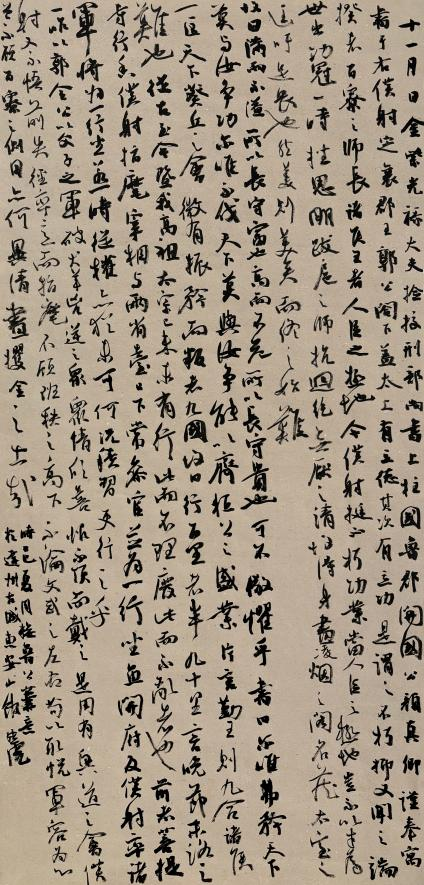 十一月日金紫光祿大夫檢校刑部尚書上柱國魯郡開國公顏真卿謹奉寓
書于右僕射定襄郡王郭公閣下蓋太上有立德其次有立功是謂之不朽抑又聞之端
揆者百寮之師長諸侯王者人臣之極地今僕射挺不朽功業當人臣之極地豈不以才為
世出功冠一時挫思明跋扈之師抗迴紇無厭之請故得身畫凌烟之閣名藏太室之
廷吁足畏也然美則美矣而終之始難
故曰滿而不溢所以長守富也高而不危所以長守貴也可不儆懼乎書曰爾唯弗矜天下
莫與汝爭功爾唯不伐天下莫與汝爭能以齊桓公之盛業片言勤王則九合諸侯
一匡天下葵丘之會微有振矜而叛者九國故曰行百里者半九十里言晚節末路之
難也從古至今暨我高祖太宗已來未有行此而不理廢此而不亂者也前者菩提
寺行香僕射指麾宰相與兩省臺已下常參官並為一行坐魚開府及僕射率諸
軍將為一行坐若一時從權亦猶未可何況積習更行之乎
一昨以郭令公以父子之軍破犬羊凶逆之眾眾情欣喜恨不頂而戴之是用有興道之會僕
射又不悟前失徑率意而指麾不顧班秩之高下不論文武之左右苟以取悅軍容為心
曾不顧百寮之側目亦何異清晝攫金之士哉